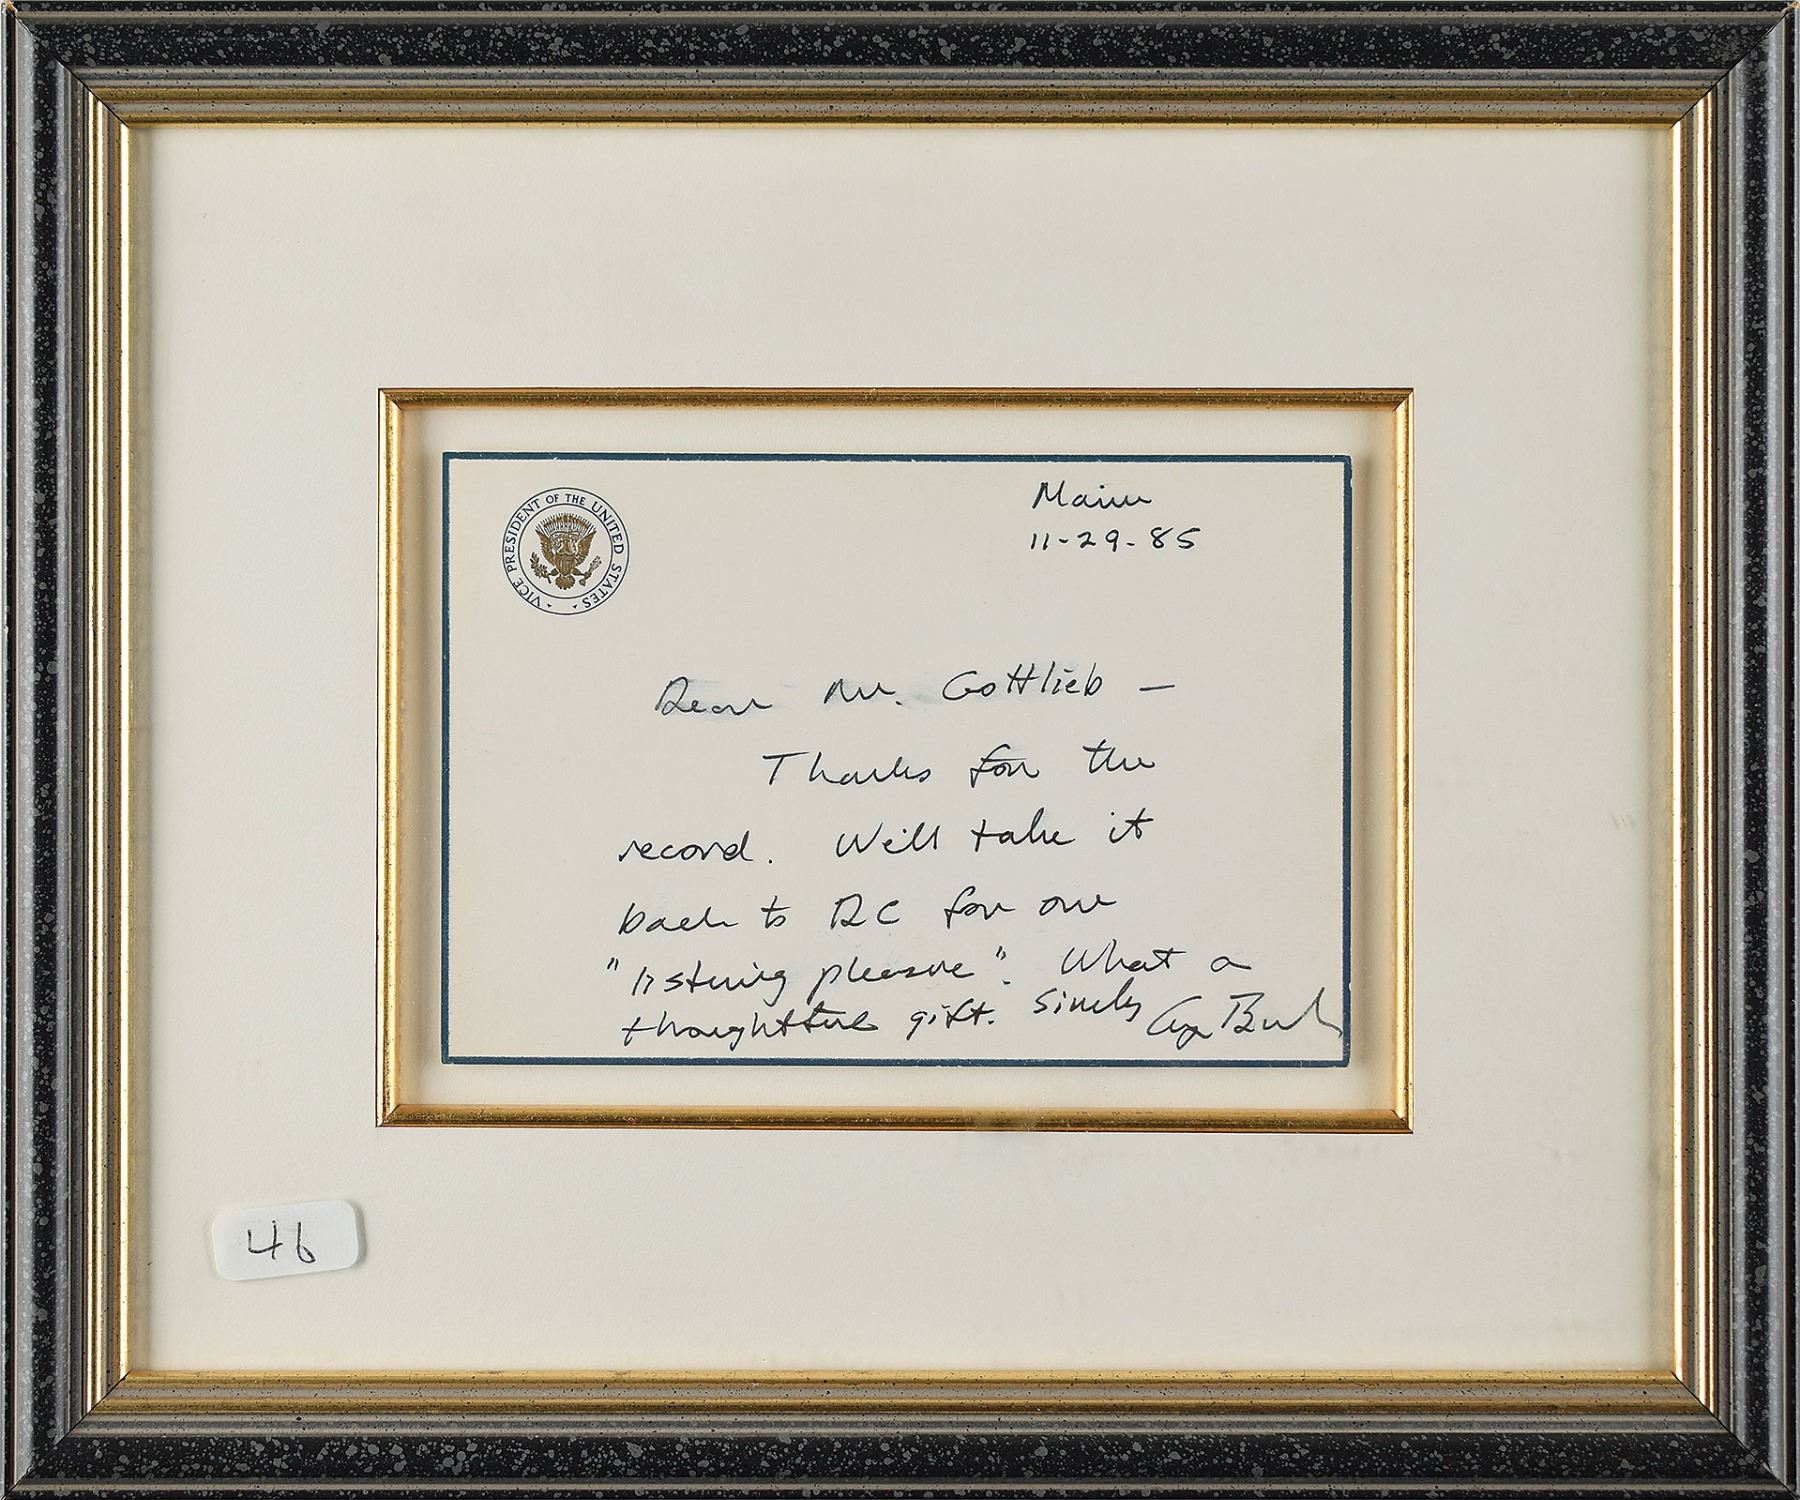 VICE PRESIDENT OF THE UNITED STATES
Maine
11-29-85
Dear Mr. Gottlieb —
Thanks for the
record. We'll take it
back to DC for our
"listening pleasure". What a
thoughtful gift. Sincerely George Bush
46